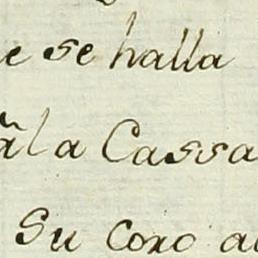 e se halla
la Cassa
Su Coxo a